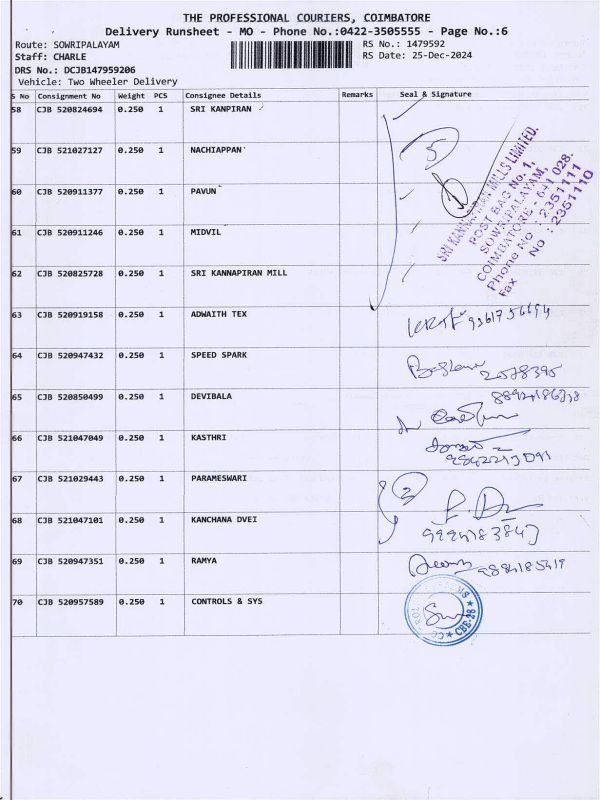 THE PROFESSIONAL COURIERS, COIMBATORE
Delivery Runsheet - MO - Phone No.:0422-3505555 - Page No.:6
Route: SOWRIPALAYAM RS No.: 1479592
Staff: CHARLE RS Date: 25-Dec-2024
DRS No.: DCJB147959206
Vehicle: Two Wheeler Delivery
S No Consignment No Weight PCS Consignee Details Remarks Seal & Signature
58 CJB 520824694 0.250 1 SRI KANPIRAN
59 CJB 521027127 0.250 1 NACHIAPPAN 5
60 CJB 520911377 0.250 1 PAVUN
61 CJB 520911246 0.250 1 MIDVIL
62 CJB 520825728 0.250 1 SRI KANNAPIRAN MILL
SRI KANNAPIRAN MILLS LIMITED.
POST BAG No. 1,
SOWRIPALAYAM,
COIMBATORE - 641 028.
Phone No : 2351111
Fax No : 2351110
63 CJB 520919158 0.250 1 ADWAITH TEX
64 CJB 520947432 0.250 1 SPEED SPARK
65 CJB 520850499 0.250 1 DEVIBALA
66 CJB 521047049 0.250 1 KASTHRI
67 CJB 521029443 0.250 1 PARAMESWARI 2
68 CJB 521047101 0.250 1 KANCHANA DVEI
69 CJB 520947351 0.250 1 RAMYA
70 CJB 520957589 0.250 1 CONTROLS & SYS
CBE-28